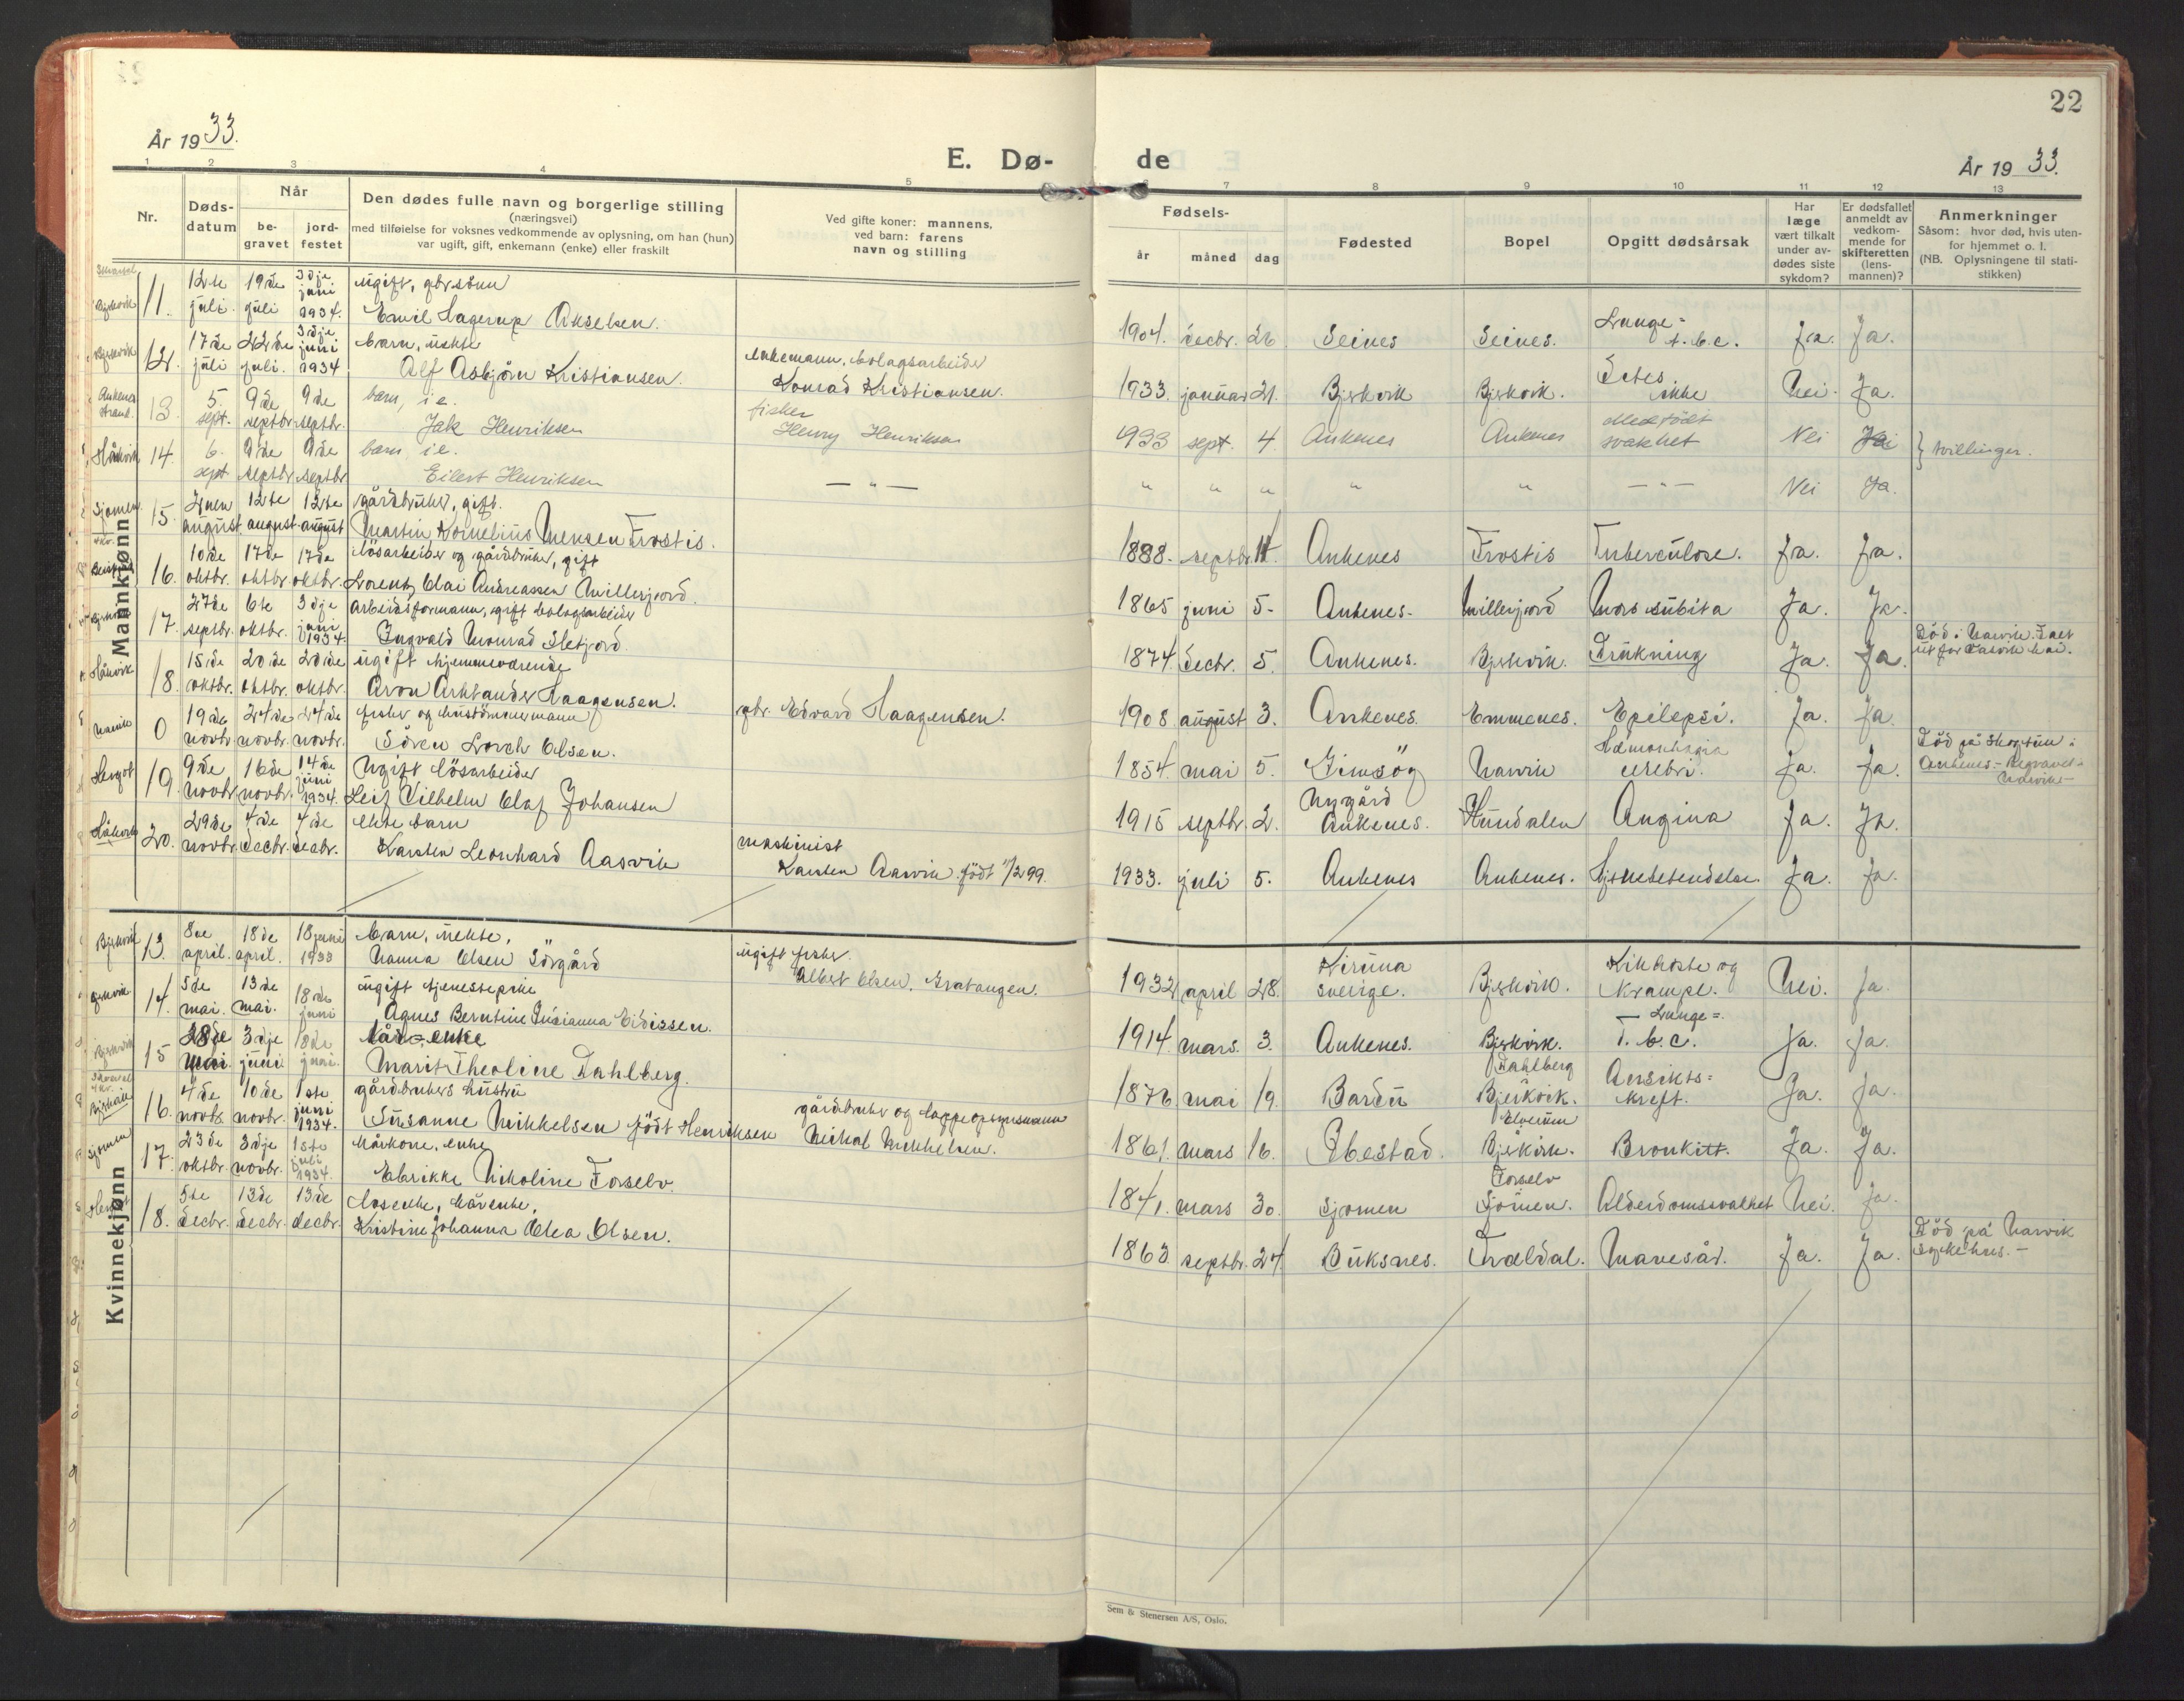 22
År 1933.
E. Dø-
de
År 1933.
1 2 3 4 5
6 7 8 9 10 11 12 13
Nr.
Døds-
datum
Når
be-
gravet
jord-
festet
Den dødes fulle navn og borgerlige stilling
(næringsvei)
med tilføielse for voksnes vedkommende av oplysning, om han (hun)
var ugift, gift, enkemann (enke) eller fraskilt
Ved gifte koner: mannens,
ved barn: farens
navn og stilling
Fødsels-
år måned dag
Fødested
Bopel
Opgitt dødsårsak
Har
læge
vært tilkalt
under av-
dødes siste
sykdom?
Er dødsfallet
anmeldt av
vedkom-
mende for
skifteretten
(lens-
mannen)?
Anmerkninger
Såsom: hvor død, hvis uten-
for hjemmet o. l.
(NB. Oplysningene til stati-
stikken)
Mannkjønn
Bjerkvik 11. 12te juli. 19de juli 3dje juni 1934. ugift, gbr.sønn
Emil Hagerup Akselsen.
1904. decbr. 26 Seines Seines. Lunge= t.b.c. Ja. Ja.
Bjerkvik 12. 17de juli 22de juli. 3dje juni 1934 barn, uekte
Alf Asbjörn Kristiansen.
enkemann, bolagsarbeider
Konrad Kristiansen.
1933. januar 21. Bjerkvik Bjerkvik. ikke Nei. Ja.
Ankenes strand. 13. 5. sept. 9de septbr. 9de septbr. barn, i.e.
Jak Henriksen
fisker
Henry Henriksen
1933 sept. 4. Ankenes Ankenes Medfödt svakhet Nei
} tvillinger.
Håkvik 14. 6. sept 9de septbr 9de septbr barn, i.e.
Eilert Henriksen
— " —
" " " " " — " — Nei Ja.
Sjomen 15. 2nen august. 12te august 12te august gårdbruker, gift.
Martin Kornelius Monsen Frostis.
1888. septbr. 11. Ankenes Frostis Tuberculose. Ja. Ja.
16. 10de oktbr. 17de oktbr. 17de oktbr. lösarbeider og gårdbruker, gift
Lorentz Olai Andreassen Millerjord.
1865 juni 5. Ankenes. Millerjord Mors subita Ja. Ja.
Bjerkvik 17. 27de septbr. 6te oktbr. 3dje juni 1934. arbeidsformann, gift bolagsarbeider
Ingvald Monrad Sletjord.
1874. decbr. 5. Ankenes. Bjerkvik. Drukning Ja. Ja.
Håkvik 18. 15de oktbr. 20de oktbr. 20de oktbr. ugift hjemmeværende
Aron Arktander Haagensen.
gbr. Edvard Haagensen.
1908 august 3. Ankenes. Emmenes. Epilepsi. Ja. Ja.
Narvik 0 19de novbr. 24de novbr. 24de novbr. fisker og hustömmermann
Sören Lorch Olsen.
1854. mai 5. Gimsöy Narvik Hämorrhagia cerebri. Ja. Ja.
Död på Skogtun i
Ankenes. – Begravet –
Narvik –
Hergot 19. 9de novbr. 16de novbr. 14de juni 1934. Ugift lösarbeider
Leif Vilhelm Olaf Johansen
1915 septbr. 2. Nygård Ankenes. Hundalen Angina Ja. Ja.
Håkvik 20. 29de novbr. 4de decbr. 4de decbr. ekte barn
Karsten Leonhard Aasvik
maskinist
Karsten Aasvik född 11/2 99.
1933. juli 5. Ankenes Ankenes. Ja. Ja.
Kvinnekjønn
Bjerkvik 13. 8de april. 18de april. 18 juni 1933 barn, uekte,
Nanna Olsen Sörgård
ugift fisker
Albert Olsen, Gratangen.
1932 april 28. Kiruna Sverige. Bjerkvik. Kikhoste og Krampe. Nei. Ja.
Bjerkvik 14. 5de mai. 13de mai. 18de juni ugift tjenestepike
Agnes Berntine Lusianna Eidissen.
1914. mars. 3. Ankenes. Bjerkvik. — Lunge= T.b.c. Ja. Ja.
Bjerkvik 15 28de mai. 3dje juni. 18de juni. kår-enke
Marit Theoline Dahlberg.
1876 mai 19. Bardu Dahlberg Bjerkvik. Ansikts= kreft. Ja. Ja.
Bjerkvik 16. 4de novbr. 10de novbr. 1ste juni 1934. gårdbrukers hustru
Susanne Mikkelsen födt Henriksen
gårdbruker og lappeopsynsmann
Mikal Mikkelsen.
1861. mars 16. Ibestad. Elverum Bjerkvik. Bronkitt. Ja. Ja.
Sjomen 17. 23de oktbr. 3dje novbr. 1ste juli 1934. kårkone, enke
Elrikke Nikoline Forselv.
1841. mars 30. Sjomen Forselv Sjomen. Alderdomssvakhet Nei. Ja.
18. 5te decbr. 13de decbr. 13de decbr. losenke, kårenke,
Kristine Johanna Olea Olsen.
1863. septbr. 24. Buksnes. Trældal. Mavesår. Ja. Ja.
Död på Narvik
sykehus. –
Sem & Stenersen A/S, Oslo.